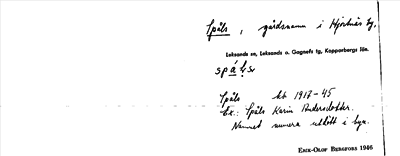 Späls, gårdsnamn i Hjortnäs by.
Leksands sn, Leksands o. Gagnefs tg, Kopparbergs län.
Späls bt 1917-45
Ex.: Späls Karin Andersdotter.
Namnet numera utdött i byn.
ERIK-OLOF BERGFORS 1946